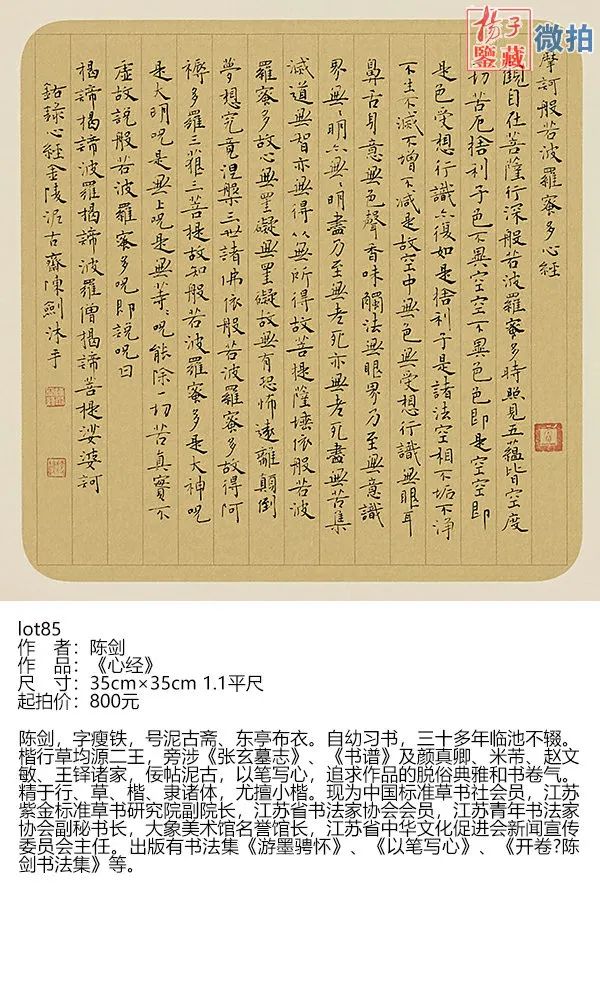 杨子
鉴藏
微拍
摩訶般若波羅蜜多心經
觀自在菩薩行深般若波羅蜜多時照見五蘊皆空度
一切苦厄捨利子色不異空空不異色色即是空空即
是色受想行識亦復如是捨利子是諸法空相不垢不淨
不生不滅不增不減是故空中無色無受想行識無眼耳
鼻舌身意無色聲香味觸法無眼界乃至無意識
界無〻明亦無〻明盡乃至無老死亦無老死盡無苦集
滅道無智亦無得以無所得故菩提薩埵依般若波
羅蜜多故心無罣礙無罣礙故無有恐怖遠離顛倒
夢想究竟涅槃三世諸佛依般若波羅蜜多故得阿
耨多羅三藐三菩提故知般若波羅蜜多是大神咒
是大明咒是無上咒是無等〻咒能除一切苦真實不
虛故說般若波羅蜜多咒即說咒曰
揭諦揭諦波羅揭諦波羅僧揭諦菩提娑婆訶
錄心經金陵泥古齋陳劍沐手
lot85
作 者：陈剑
作 品：《心经》
尺 寸：35cm×35cm 1.1平尺
起拍价：800元
陈剑，字瘦铁，号泥古斋、东亭布衣。自幼习书，三十多年临池不辍。
楷行草均源二王，旁涉《张玄墓志》、《书谱》及颜真卿、米芾、赵文
敏、王铎诸家，佞帖泥古，以笔写心，追求作品的脱俗典雅和书卷气。
精于行、草、楷、隶诸体，尤擅小楷。现为中国标准草书社会员，江苏
紫金标准草书研究院副院长，江苏省书法家协会会员，江苏青年书法家
协会副秘书长，大象美术馆名誉馆长，江苏省中华文化促进会新闻宣传
委员会主任。出版有书法集《游墨骋怀》、《以笔写心》、《开卷?陈
剑书法集》等。